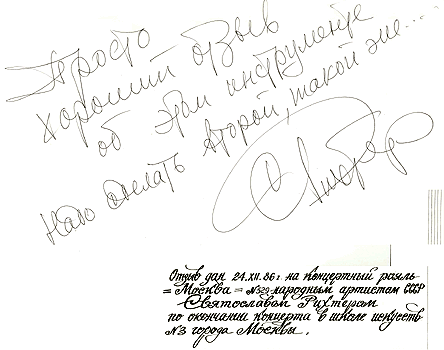 Просто
хороший отзыв
об этом инструменте
Надо сделать второй, такой же...
С Рихтер
Отзыв дан 24.XII.86 г. на концертный рояль
= Москва = №29 народным артистом СССР
Святославом Рихтером
по окончании концерта в школе искусств
№3 города Москвы.